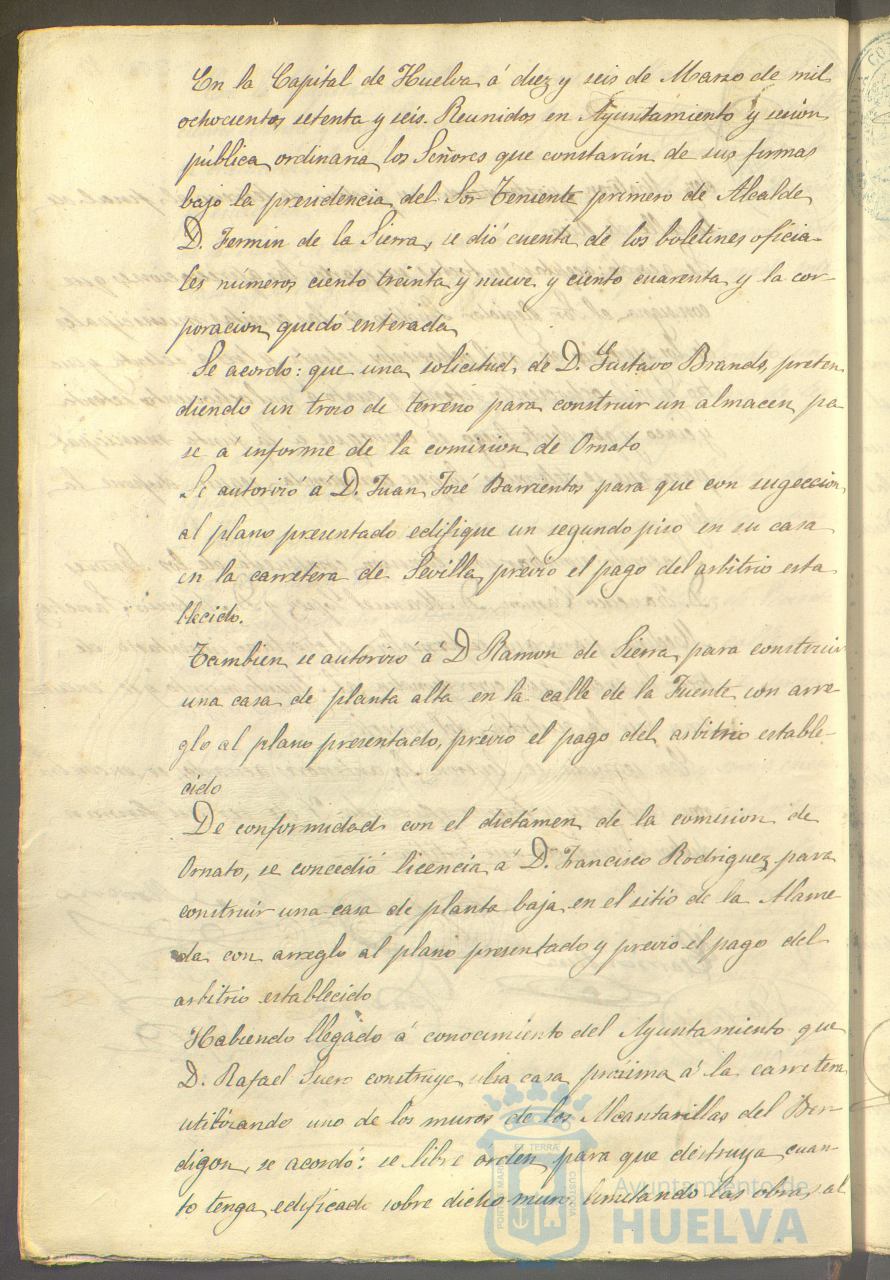 En la Capital de Huelva á diez y seis de Marzo de mil
ochocientos setenta y seis. Reunidos en Ayuntamiento y sesion
pública ordinaria los Señores que constarán de sus firmas
bajo la presidencia del Sor Teniente primero de Alcalde
D. Fermin de la Sierra, se dió cuenta de los boletines oficia-
les numeros ciento treinta y nueve y ciento cuarenta y la cor-
poracion quedó enterada
Se acordó: que una solicitud de D. Gustavo Brands, preten
diendo un trozo de terreno para construir un almacen pa
se á informe de la comision de Ornato
Se autorizó á D. Juan José Barrientos para que con sugeccion
al plano presentado edifique un segundo piso en su casa
en la carretera de Sevilla, prévio el pago del arbitrio esta
blecido.
Tambien se autorizó á D Ramon de Sierra para construir
una casa de planta alta en la calle de la Fuente con arre-
glo al plano presentado, prévio el pago del arbitrio estable-
cido
De conformidad con el dictámen de la comision de
Ornato, se concedió licencia á D. Francisco Rodriguez para
construir una casa de planta baja en el sitio de la Alame
da con arreglo al plano presentado y previo el pago del
arbitrio establecido
Habiendo llegado á conocimiento del Ayuntamiento que
D. Rafael Suero construye una casa próxima á la carretera
utilizando uno de los muros de los Alcantarillas del Ber-
digon, se acordó: se libre orden para que destruya cuan-
to tenga edificado sobre dicho muro limitando las obras al
PORTUS MARIS ET TERRAE CUSTODIA
Ayuntamiento de
HUELVA